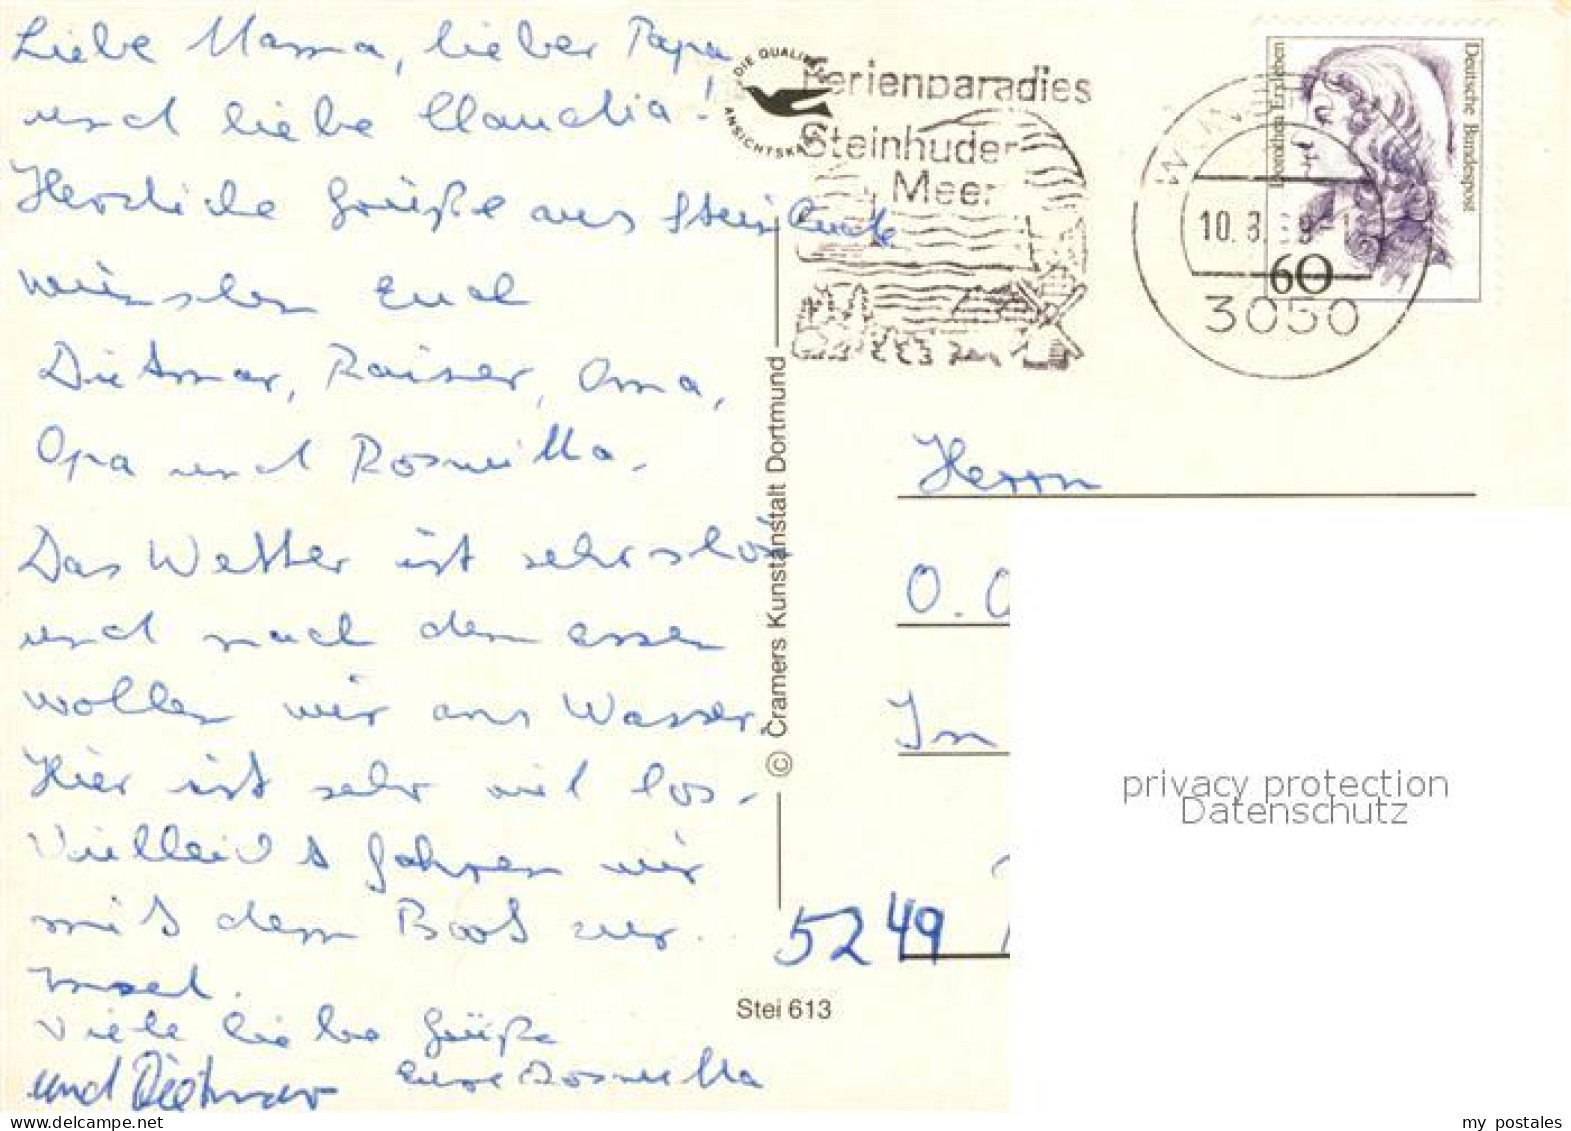 Liebe Mama, lieber Papa
und liebe Claudia!
Herzliche Grüße aus Steinhude
wünschen Euch
Dietmar, Rainer, Oma,
Opa und Roswitta.
Das Wetter ist sehr schön
und nach dem essen
wollen wir ans Wasser.
Hier ist sehr viel los.
Vielleicht fahren wir
mit dem Boot zur
Insel.
Viele liebe Grüße
Eure Roswitta
und Dietmar
DIE QUALITÄTS
ANSICHTSKARTE
Ferienparadies
Steinhuder
Meer
10.8.
3050
Deutsche Bundespost
Dorothea Erxleben
60
© Cramers Kunstanstalt Dortmund
Stei 613
Herrn
O.
In
5249
privacy protection
Datenschutz
delcampe.net
my_postales